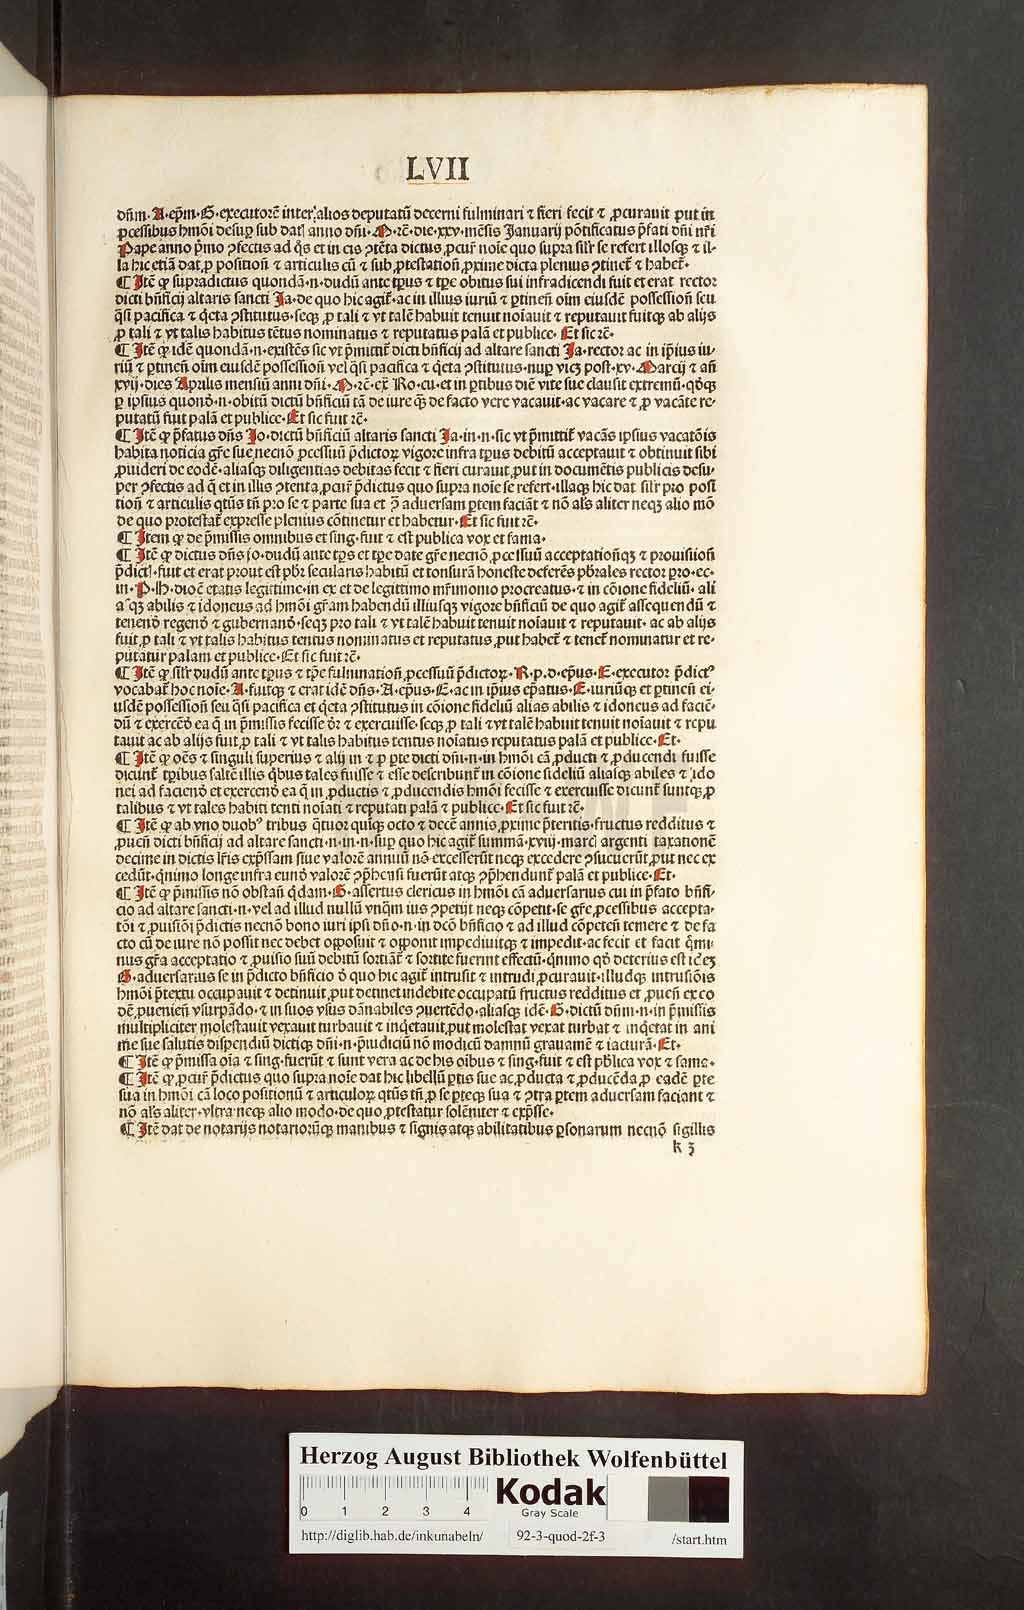 LVII
dñm·A·ep̃m·G·executorē inter alios deputatū decerni fulminari ⁊ fieri fecit ⁊ ꝓcurauit put in
ꝓcessibus hmõi desuꝑ sub dat anno dñi·M·rē·die·xxv·mēsis Januarij põtificatus p̃fati dñi nr̃i
Pape anno p̱mo ꝯfectus ad q̃s et in eis ꝯtēta dictus ꝓcur̃ noĩe quo supra silr̃ se refert illosqꝫ ⁊ il-
la hic etiã dat ꝓ position̄ ⁊ articulis cū ⁊ sub ꝓtestation̄ ꝓxime dicta plenius ꝯtinet ⁊ habet·
¶ Jtē ꝙ supradictus quondã·n·dudū ante tp̱us ⁊ tp̱e obitus sui infradicendi fuit et erat rector
dicti bñficij altaris sancti Ja·de quo hic agit·ac in illius iuriū ⁊ ꝑtineñ oĩm eiusdē possession̄ seu
q̃si pacifica ⁊ q̃eta ꝯstitutus·seqꝫ ꝓ tali ⁊ vt talē habuit tenuit noĩauit ⁊ reputauit fuitqꝫ ab alijs
ꝓ tali ⁊ vt talis habitus tētus nominatus ⁊ reputatus palã et publice· Et sic rē·
¶ Jtē ꝙ idē quondã·n·existēs sic vt p̃mittit dicti bñficij ad altare sancti Ja·rector ac in ip̃ius iu-
riū ⁊ ꝑtineñ oĩm eiusdē possession̄ vel q̃si pacifica ⁊ q̃eta ꝯstitutus·nuꝑ vicꝫ post·xv·Marcij ⁊ añ
xvij·dies Aprilis mensiū anni dñi·M·rē·eẍ Ro·cu·et in ꝑtibus diē vite sue clausit extremū·q̃oqꝫ
ꝑ ipsius quonō·n·obitū dictū bñficiū tã de iure q̃ꝫ de facto vere vacauit·ac vacare ⁊ ꝓ vacãte re-
putatū fuit palã et publice·Et sic fuit rē·
¶ Jtē ꝙ p̃fatus dñs Jo·dictū bñficiū altaris sancti Ja·in·n·sic vt p̃mittit vacãs ipsius vacatõis
habita noticia gr̃e sue necnō ꝓcessuū p̃dictoꝝ vigore infra tp̱us debitū acceptauit ⁊ obtinuit sibi
ꝓuideri de eodē·aliasqꝫ diligentias debitas fecit ⁊ fieri curauit ꝓut in documētis publicis desu-
per ꝯfectis ad q̃ et in illis ꝯtenta ꝓcur̃ p̃dictus quo supra noĩe se refert·illaqꝫ hic dat silr̃ pro posi
tion̄ ⁊ articulis qt̃us tñ pro se ⁊ parte sua et ꝯ̃ aduersam ꝑtem faciãt ⁊ nō als̃ aliter neqꝫ alio mō
de quo protestat expresse plenius cõtinetur et habetur·Et sic fuit rē·
¶ Jtem ꝙ de p̃missis omnibus et sing·fuit ⁊ est publica vox et fama·
¶ Jtē ꝙ dictus dñs jo·dudū ante tp̱s et tp̱e date gr̃e necnō ꝓcessuū acceptation̄qꝫ ⁊ prouision̄
p̃dict·fuit et erat prout est pb̃r secularis habitū et tonsurã honeste deferēs pb̃rales rector ꝑro·ec·
in·P·H·dioc̄ etatis legittime·in ex et de legittimo mr̃imonio procreatus·⁊ in cõione fideliū· ali
asqꝫ abilis ⁊ idoneus ad hmõi gr̃am habendū illiusqꝫ vigore bñficiū de quo agit assequendū ⁊
tenenō regenō ⁊ gubernanō·seqꝫ pro tali ⁊ vt talē habuit tenuit noĩauit ⁊ reputauit· ac ab alijs
fuit ꝓ tali ⁊ vt talis habitus tentus nominatus et reputatus ꝓut habet ⁊ tenet nominatur et re-
putatur palam et publice·Et sic fuit rē·
¶ Jtē ꝙ silr̃ dudū ante tp̱us ⁊ tp̱e fulmination̄ ꝓcessuū p̃dictoꝝ·R·p·d·ep̃us·E·executor p̃dictꝰ
vocabat hoc noĩe·A·fuitqꝫ ⁊ erat idē dñs·A·ep̃us·E·ac in ip̃ius ep̃atus·E·iuriūqꝫ et ꝑtineñ ei-
usdē possession̄ seu q̃si pacifica et q̃eta ꝯstitutus in cõione fideliū alias abilis ⁊ idoneus ad faciē-
dū ⁊ exercēō ea q̃ in p̃missis fecisse ō̃r ⁊ exercuisse·seqꝫ ꝓ tali ⁊ vt talē habuit tenuit noĩauit ⁊ repu
tauit ac ab alijs fuit ꝓ tali ⁊ vt talis habitus tentus noĩatus reputatus palã et publice·Et·
¶ Jtē ꝙ oēs ⁊ singuli superius ⁊ alij in ⁊ ꝓ ꝑte dicti dñi·n·in hmõi cã ꝓducti ⁊ ꝓducendi fuisse
dicunt tꝑibus saltē illis q̃bus tales fuisse ⁊ esse describunt in cõione fideliū aliasqꝫ abiles ⁊ ido
nei ad facienō et exercenō ea q̃ in ꝓductis ⁊ ꝓducendis hmõi fecisse ⁊ exercuisse dicunt suntqꝫ ꝓ
talibus ⁊ vt tales habiti tenti noĩati ⁊ reputati palã ⁊ publice·Et sic fuit rē·
¶ Jtē ꝙ ab vno duobꝰ tribus q̃tuor quiqꝫ octo ⁊ decē annis ꝓxime p̃teritis·fructus redditus ⁊
ꝓuen̄ dicti bñficij ad altare sancti·n·in·n·suꝑ quo hic agit summã·xviij·marc argenti taxationē
decime in dictis lr̃is exp̃ssam siue valorē annuū nō excesserūt neqꝫ excedere ꝯsueuerūt ꝓut nec ex
cedūt·q̃nimo longe infra eunō valorē ꝯp̃hensi fuerūt atqꝫ ꝯp̃hendunt palã et publice·Et·
¶ Jtē ꝙ p̃missis nō obstañ q̃dam·G·assertus clericus in hmõi cã aduersarius cui in p̃fato bñfi-
cio ad altare sancti·n·vel ad illud nullū vnq̃m ius ꝯpetijt neqꝫ cõpetit·se gr̃e ꝓcessibus accepta-
tõi ⁊ ꝓuisiõi p̃dictis necnō bono iuri ipsi dñō·n·in dc̄ō bñficio ⁊ ad illud cõpeteñ temere ⁊ de fa
cto cū de iure nō possit nec debet opposuit ⁊ opponit impediuitqꝫ ⁊ impedit·ac fecit et facit q̃mi-
nus gr̃a acceptatio ⁊ ꝓuisio suū debitū sortiãt ⁊ sortite fuerint effectū·q̃nimo qō̃ deterius est idēꝫ
G·aduersarius se in p̃dicto bñficio ō̃ quo hic agit intrusit ⁊ intrudi ꝓcurauit·illudqꝫ intrusiõis
hmõi p̃textu occupauit ⁊ detinuit ꝓut detinet indebite occupatū fructus redditus et ꝓuen̄ ex eo
dē ꝓuenien̄ vsurpãdo·⁊ in suos vsus dãnabiles ꝯuertēdo·aliasqꝫ idē·G·dictū dñm·n·in p̃missis
multipliciter molestauit vexauit turbauit ⁊ inq̃etauit ꝓut molestat vexat turbat ⁊ inq̃etat in ani
me sue salutis dispendiū dictiqꝫ dñi·n·p̃iudiciū nō modicū damnū grauamē ⁊ iacturã·Et·
¶ Jtē ꝙ p̃missa oĩa ⁊ sing·fuerūt ⁊ sunt vera ac de his oĩbus ⁊ sing·fuit ⁊ est pb̃lica vox ⁊ fama·
¶ Jtē ꝙ ꝓcur̃ p̃dictus quo supra noĩe dat hic libellū ꝑtis sue ac ꝓducta ⁊ ꝓducēda ꝓ eadē ꝑte
sua in hmõi cã loco positionū ⁊ articuloꝝ qt̃us tñ ꝓ se ꝑteqꝫ sua ⁊ ꝯtra ꝑtem aduersam faciant ⁊
nō als̃ aliter·vltra neqꝫ alio modo·de quo ꝓtestatur solēniter ⁊ exp̃sse·
¶ Jtē dat de notarijs notariorūqꝫ manibus ⁊ signis atqꝫ abilitatibus ꝑsonarum necnō sigillis
k 3
Herzog August Bibliothek Wolfenbüttel
0 1 2 3 4
Kodak
Gray Scale
http://diglib.hab.de/inkunabeln/ 92-3-quod-2f-3 /start.htm